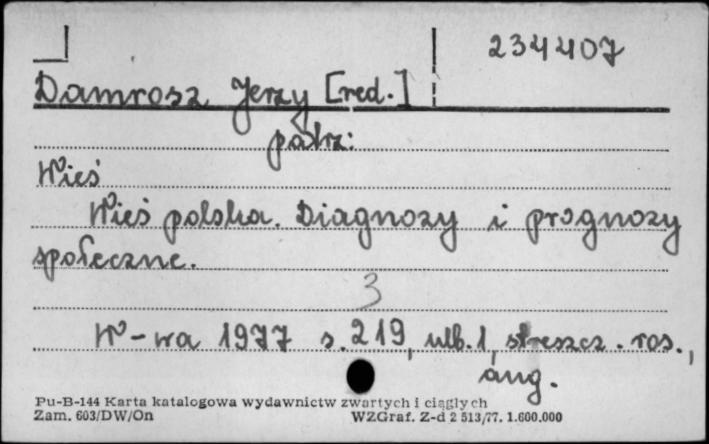 234407
Damrosz Jerzy [red.]
patrz:
Wieś
Wieś polska. Diagnozy i prognozy
społeczne.
3
W-wa 1977 s. 219, ulb. 1, streszcz. ros.,
ang.
Pu-B-144 Karta katalogowa wydawnictw zwartych i ciągłych
Zam. 603/DW/On WZGraf. Z-d 2 513/77. 1.600.000